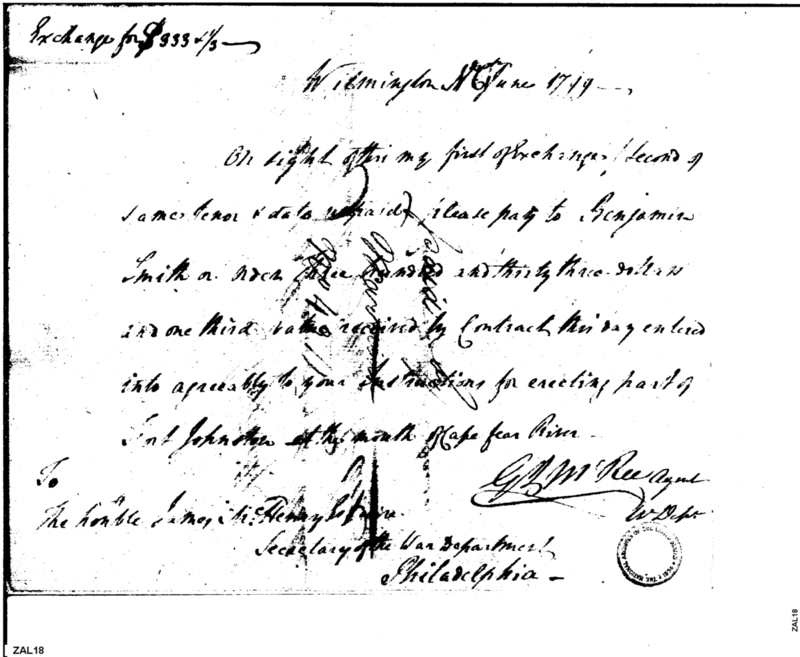 Exchange for $333 1/3
Wilmington NC June 1799
On sight of this my first of Exchange (Second of
same tenor & date unpaid) please pay to Benjamin
Smith or order three hundred and thirty three dollars
and one third value received by Contract this day entered
into agreeably to your Instructions for erecting part of
Fort Johnston at the mouth of Cape Fear River
G J McRee Agent
W Dept
To
The Honble James McHenry Esquire
Secretary of the War Department
Philadelphia
ZAL18
ZAL18